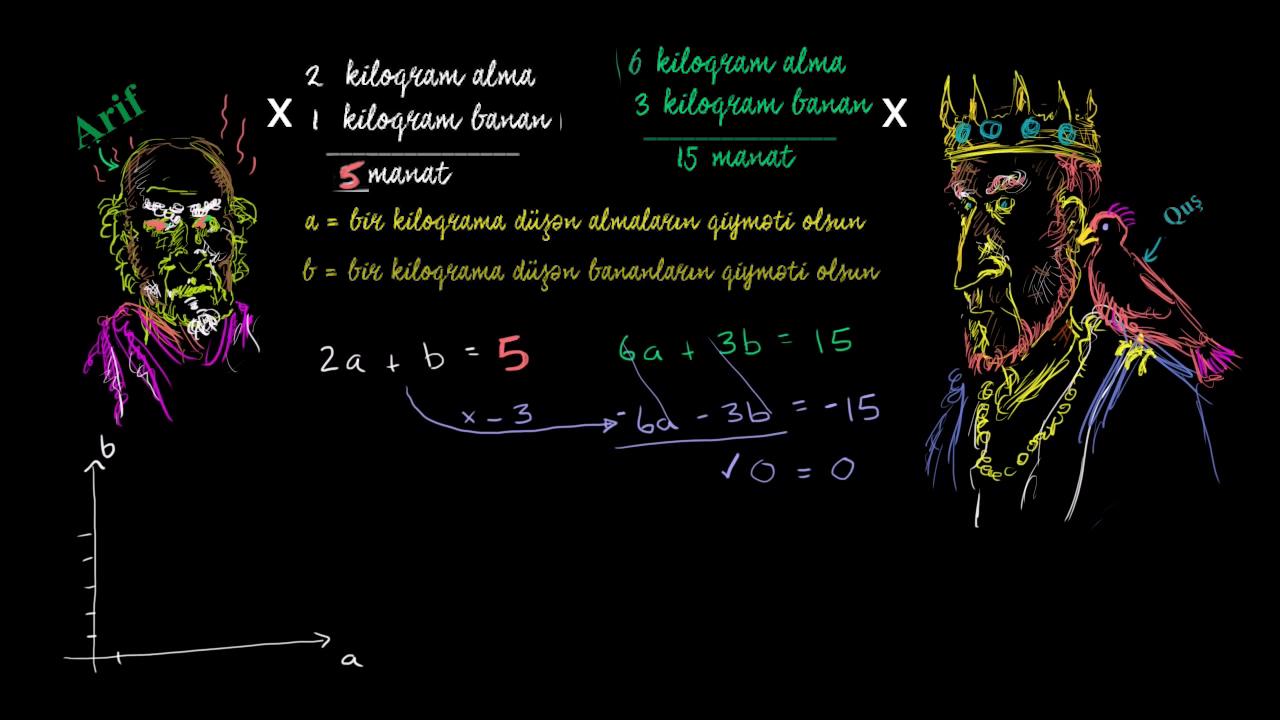 Arif
X
2 kiloqram alma
1 kiloqram banan
5 manat
6 kiloqram alma
3 kiloqram banan
15 manat
X
Quş
a = bir kiloqrama düşən almaların qiyməti olsun
b = bir kiloqrama düşən bananların qiyməti olsun
2a + b = 5
6a + 3b = 15
x - 3
-6a - 3b = -15
✓ 0 = 0
b
a